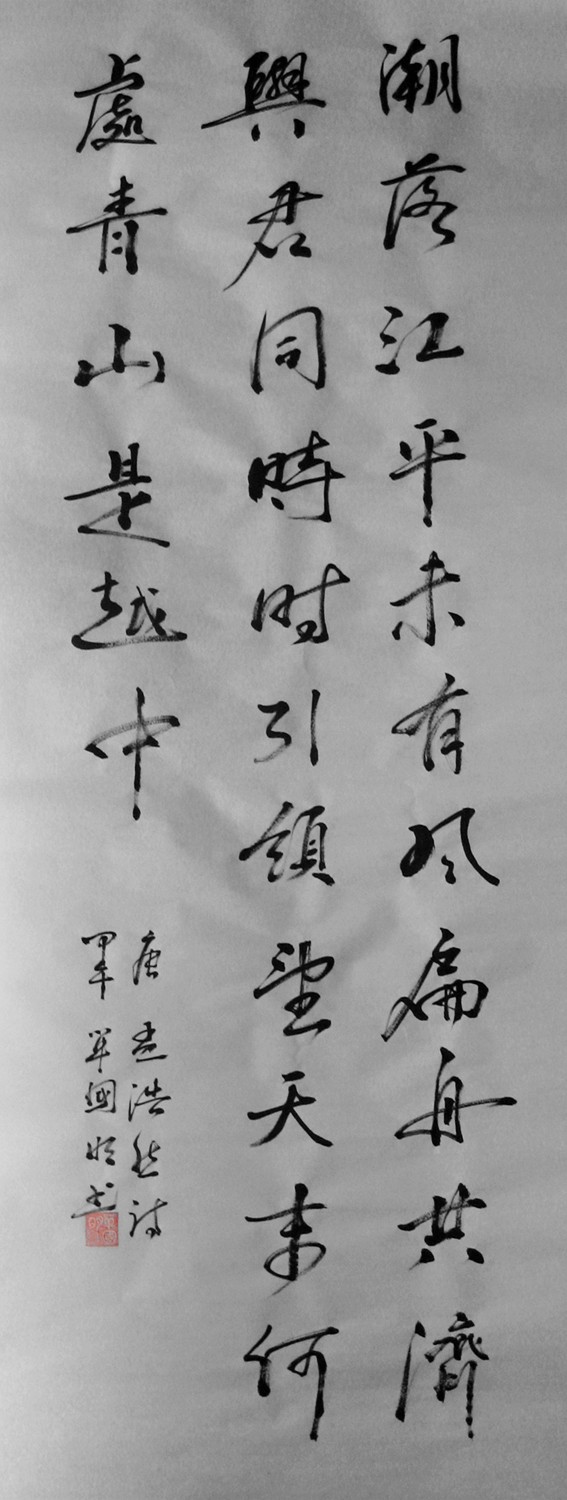 潮落江平未有风扁舟共濟
與君同時时引領望天末何
處青山是越中
唐 孟浩然詩
甲午 單國明书